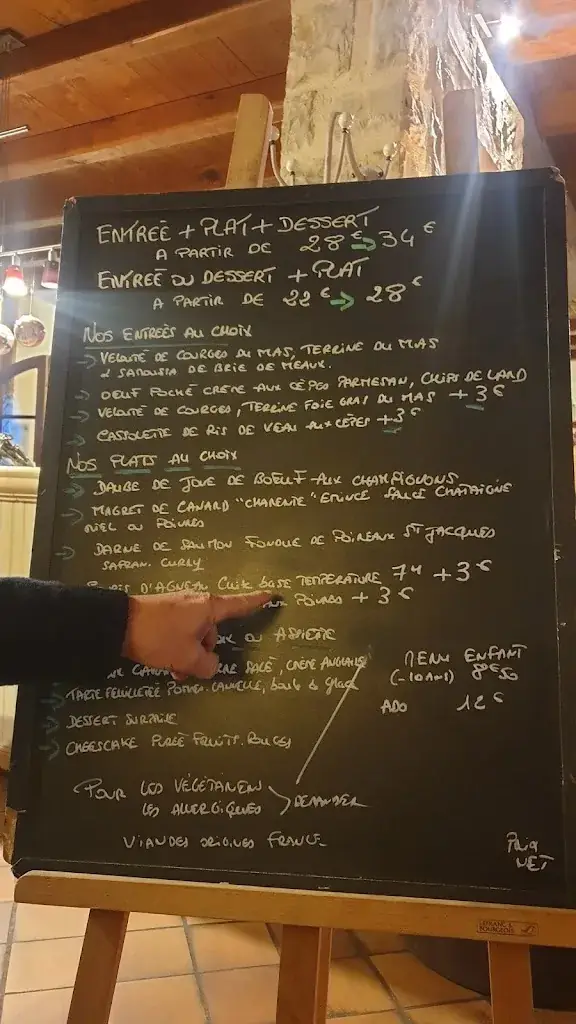 ENTREÉ + PLAT + DESSERT
A PARTIR DE 28€ → 34€
ENTREÉ OU DESSERT + PLAT
A PARTIR DE 22€ → 28€
NOS ENTREÉS AU CHOIX
→ VELOUTÉ DE COURGES DU MAS, TERRINE DU MAS
& DE BRIE DE MEAUX.
→ OEUF POCHÉ CRÈME AUX CÈPES PARMESAN, CHIPS DE LARD
→ VELOUTÉ DE COURGES, TERRINE FOIE GRAS DU MAS +3€
→ CASSOLETTE DE RIS DE VEAU AUX CÈPES +3€
NOS PLATS AU CHOIX
→ DAUBE DE JOUE DE BOEUF AUX CHAMPIGNONS
→ MAGRET DE CANARD "CHARENTE" EMINCÉ SAUCE CHATAIGNE
MIEL OU POIVRES
→ DARNE DE SAUMON FONDUE DE POIREAUX ST JACQUES
SAFRAN. CURRY
D'AGNEAU CUITE BASE TEMPERATURE 7H +3€
POIVRES +3€
OU ASSIETTE
SALÉ, CRÈME ANGLAISE
→ TARTE FEUILLETÉE POMMES. CANNELLE, boule de glace
→ DESSERT SURPRISE
→ CHEESCAKE PUREÉ FRUITS. ROUGES
MENU ENFANT
(-10ANS) 8€50
ADO 12€
POUR LES VÉGÉTARIENS
LES ALLERGIQUES > DEMANDER
VIANDES ORIGINES FRANCE
Prix
NET
LEFRANC &
BOURGEOIS